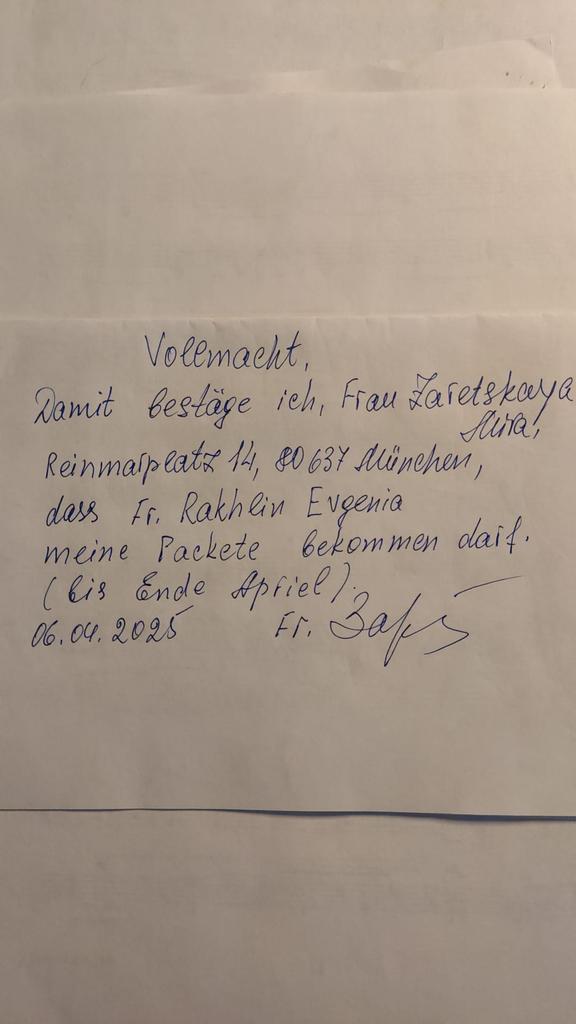 Vollmacht,
Damit bestäge ich, Frau Zaretskaya
Mira,
Reinmarplatz 14, 80637 München,
dass Fr. Rakhlin Evgenia
meine Packete bekommen darf.
(bis Ende Apriel).
06.04.2025 Fr.